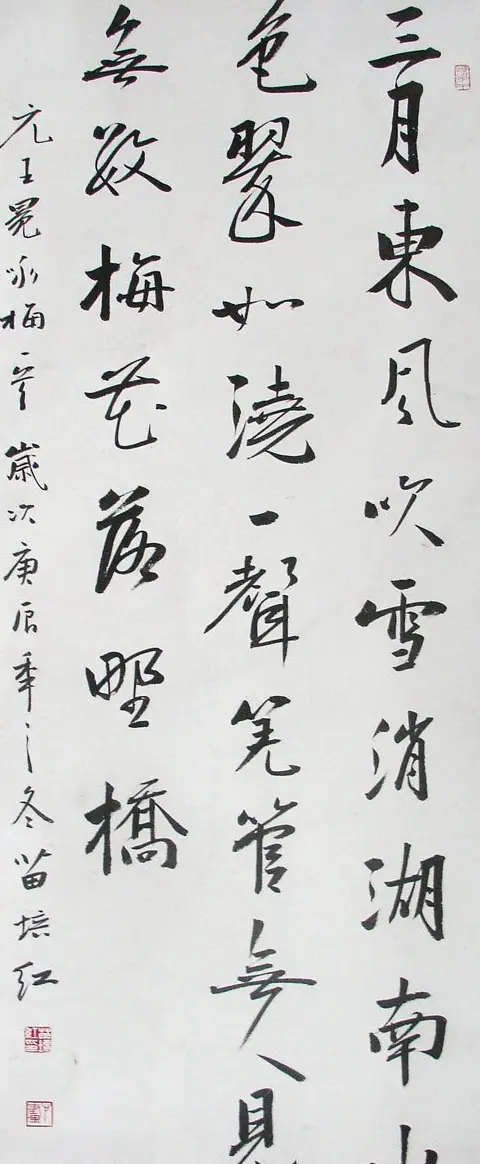 三月東風吹雪消湖南山
色翠如澆一聲羌管無人見
無數梅花落野橋
元王冕咏梅一 歲次庚辰年之冬苗培红